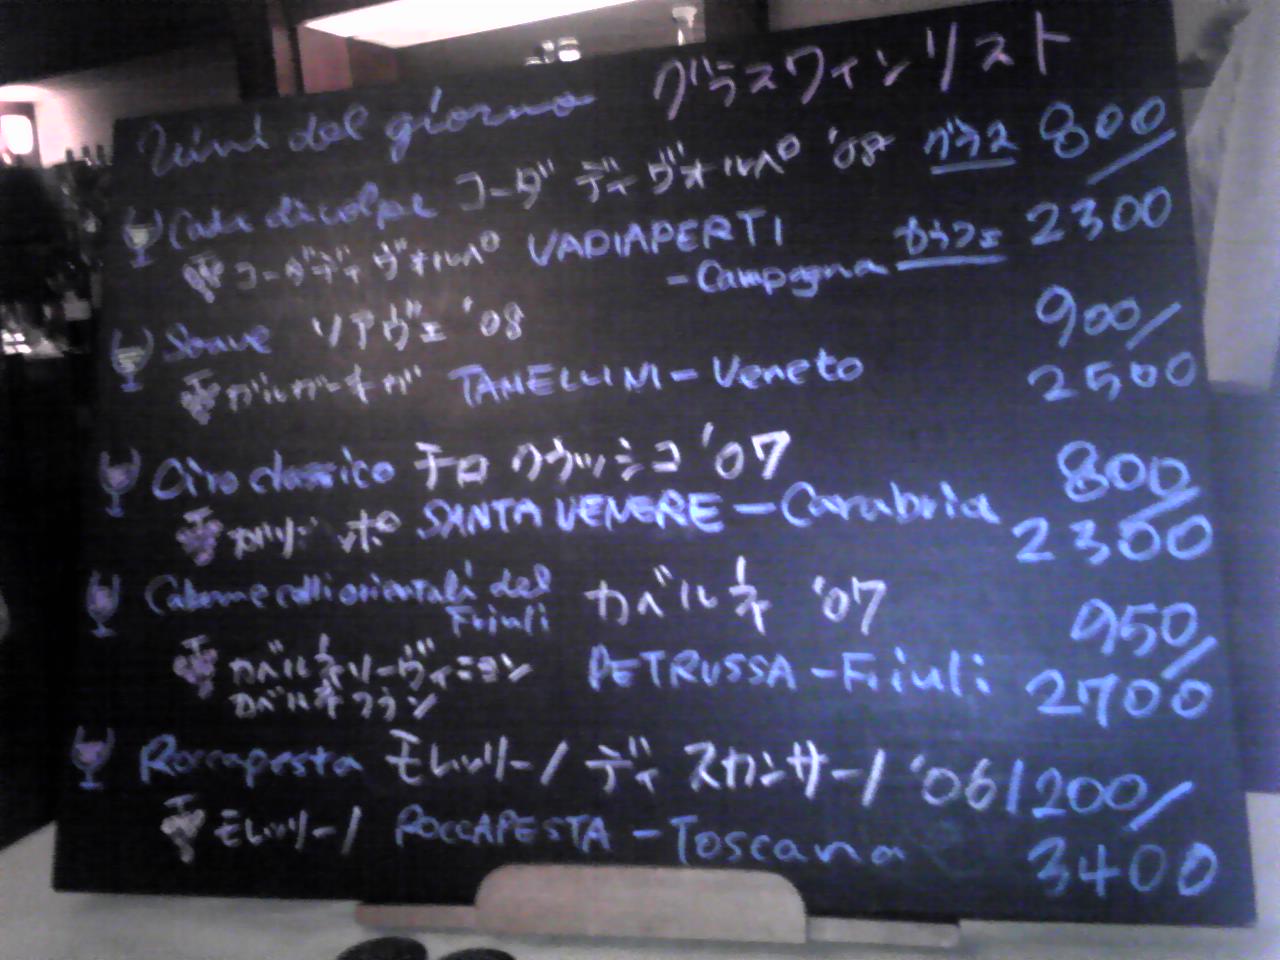 Vini del giorno グラスワインリスト
Coda di volpe コーダ ディ ヴォルペ '08 グラス 800/
コーダディヴォルペ VADIAPERTI -Campagna カラフェ 2300
Soave ソアヴェ '08 900/
ガルガーネガ TAMELLINI-Veneto 2500
Ciro classico チロ クラッシコ '07 800/
ガリオッポ SANTA VENERE-Carabria 2300
Caberne colli orientali del Friuli カベルネ '07 950/
カベルネソーヴィニヨン PETRUSSA-Friuli 2700
カベルネフラン
Roccapesta モレッリーノ ディ スカンサーノ '06 1200/
モレッリーノ ROCCAPESTA-Toscana 3400